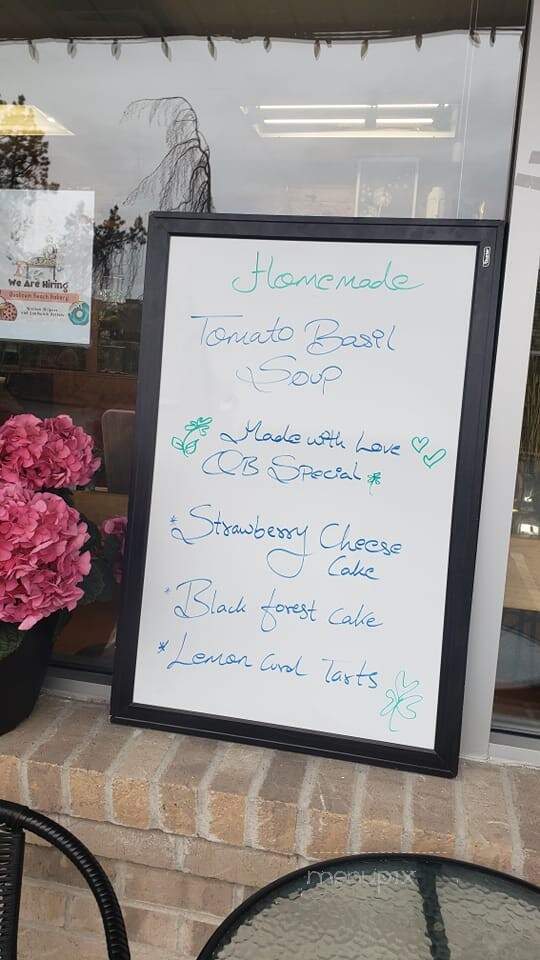 We Are Hiring
Qualicum Beach Bakery
Homemade
Tomato Basil
Soup
Made with Love
QB Special
* Strawberry Cheese
Cake
* Black forest cake
* Lemon Curd Tarts
menupix